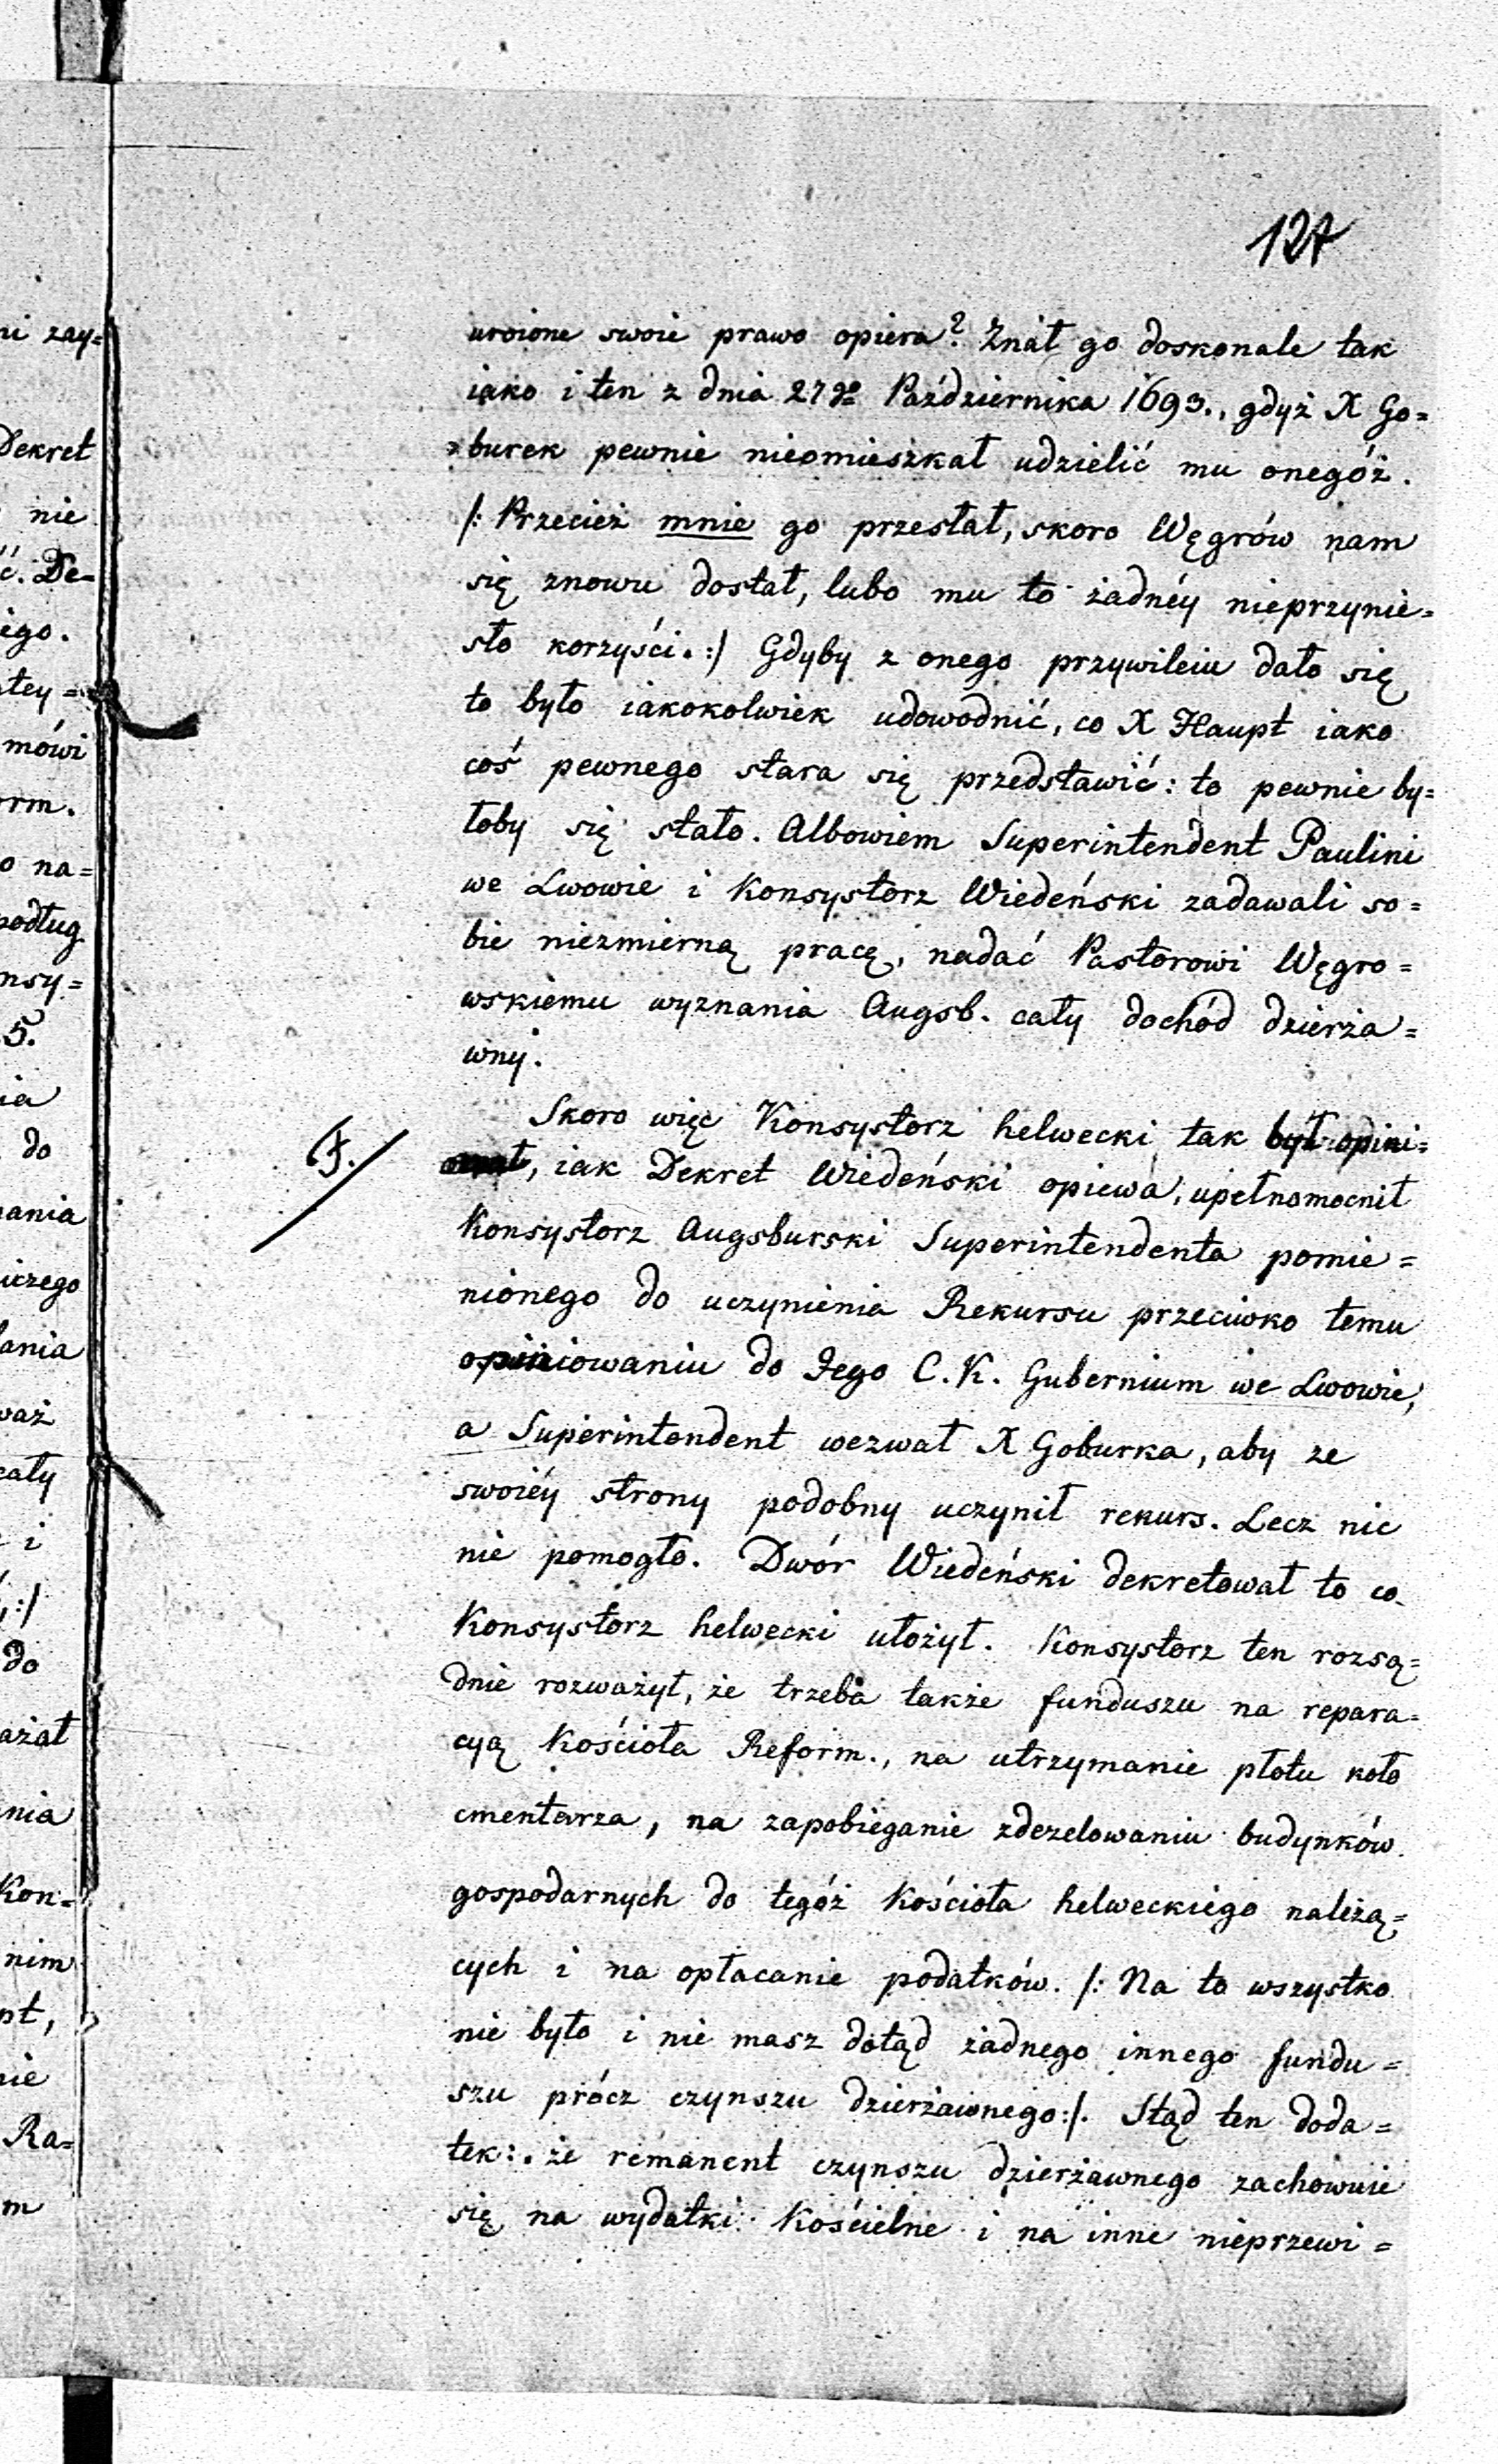 127
uroione swoie prawo opiera? Znał go doskonale tak
iako i ten z dnia 27go Października 1693., gdyż X Go=
=burek pewnie nieomieszkał udzielić mu onegóż.
/: Przecież mnie go przesłał, skoro Węgrów nam
się znowu dostał, lubo mu to żadnéy nieprzynie=
sło korzyści. :/ Gdyby z onego przywileiu dało się
to było iakokolwiek udowodnić, co X Haupt iako
coś pewnego stara się przedstawić: to pewnie by=
łoby się stało. Albowiem Superintendent Paulini
we Lwowie i Konsystorz Wiedeński zadawali so=
bie niezmierną pracę, nadać Pastorowi Węgro=
wskiemu wyznania Augsb. cały dochód dzierża=
wny.
Skoro więc Konsystorz helwecki tak był opini=
F.
onał, iak Dekret Wiedeński opiewa, upełnomocnił
Konsystorz Augsburski Superintendenta pomie=
nionego do uczynienia Rekursu przeciwko temu
opiniowaniu do Jego C. K. Gubernium we Lwowie,
a Superintendent wezwał X Goburka, aby ze
swoiéy strony podobny uczynił rekurs. Lecz nic
nie pomogło. Dwór Wiedeński dekretował to co
Konsystorz helwecki ułożył. Konsystorz ten rozsą=
dnie rozważył, że trzeba także funduszu na repara=
cyą Kościoła Reform., na utrzymanie płotu koło
cmentarza, na zapobieganie zdezelowaniu budynków
gospodarnych do tegóż Kościoła helweckiego należą=
cych i na opłacanie podatków. /: Na to wszystko
nie było i nie masz dotąd żadnego innego fundu=
szu prócz czynszu dzierżawnego:/. Stąd ten doda=
tek:. że remanent czynszu dzierżawnego zachowuie
się na wydatki Kościelne i na inne nieprzewi=